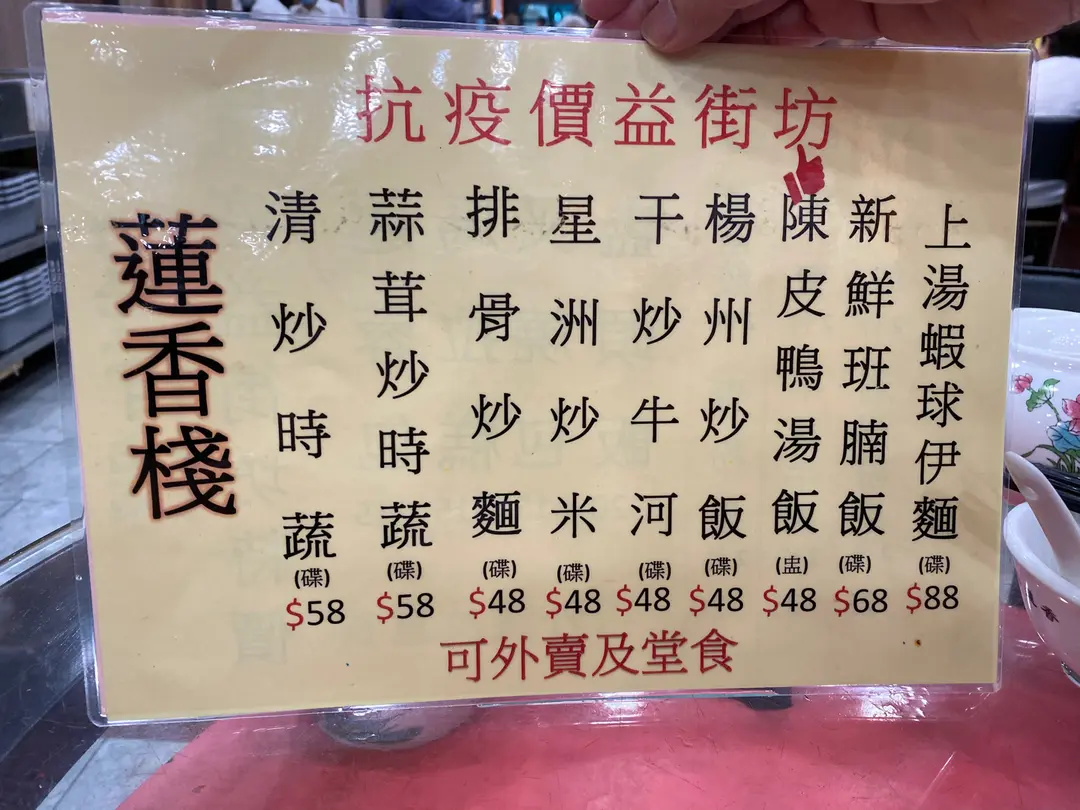 抗疫價益街坊
上湯蝦球伊麵(碟)$88
新鮮班腩飯(碟)$68
陳皮鴨湯飯(盅)$48
楊州炒飯(碟)$48
干炒牛河(碟)$48
星洲炒米(碟)$48
排骨炒麵(碟)$48
蒜茸炒時蔬(碟)$58
清炒時蔬(碟)$58
蓮香棧
可外賣及堂食